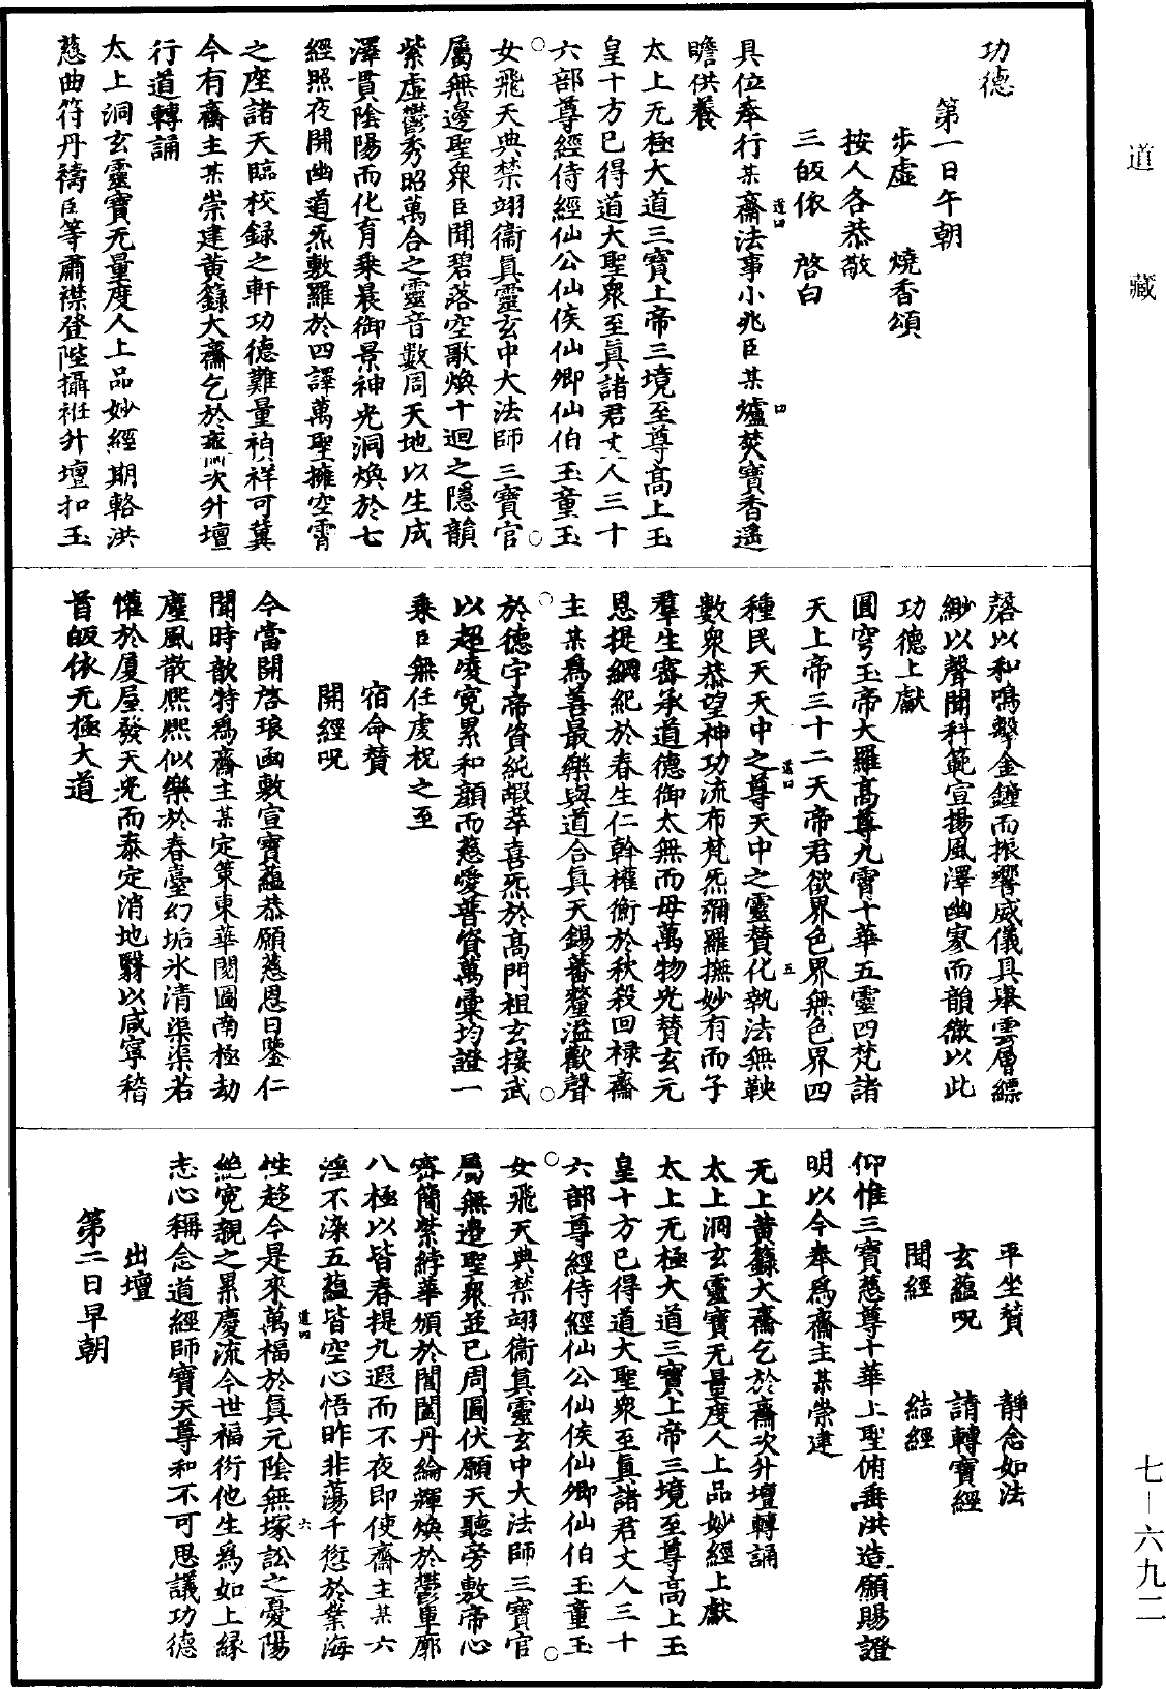 道藏
功德
第一日午朝
步虛　燒香頌
按人各恭敬
三皈依　啓白
具位奉行某齋法事小兆臣某爐焚寶香遙
瞻供養
太上无極大道三寶上帝三境至尊高上玉
皇十方已得道大聖衆至眞諸君丈人三十
六部尊經侍經仙公仙侯仙卿仙伯玉童玉
女飛天典禁翊衞眞靈玄中大法師三寶官
屬無邊聖衆臣聞碧落空歌煥十迴之隱韻
紫虛鬱秀昭萬合之靈音數周天地以生成
澤貫陰陽而化育乘晨御景神光洞煥於七
經照夜開幽道炁敷羅於四譯萬聖擁空霄
之座諸天臨校録之軒功德難量禎祥可冀
今有齋主某崇建黃籙大齋乞於齋次升壇
行道轉誦
太上洞玄靈寶无量度人上品妙經期輅洪
慈曲符丹禱臣等肅襟登陛攝袵升壇扣玉
磬以和鳴擊金鐘而振響威儀具舉雲層縹
緲以聲聞科範宣揚風澤幽寥而韻徹以此
功德上獻
圓穹玉帝大羅高尊九霄十華五靈四梵諸
天上帝三十二天帝君欲界色界無色界四
種民天天中之尊天中之靈贊化執法無鞅
數衆恭望神功流布梵炁彌羅撫妙有而子
羣生審承道德御太無而母萬物光贊玄元
恩提綱紀於春生仁幹權衡於秋殺回禄齋
主某爲善最樂與道合眞天錫蕃釐溢歡聲
於德宇帝資純嘏萃喜炁於高門祖玄接武
以超凌寃累和顔而慈愛普資萬彙均證一
乘臣無任虔祝之至
宿命贊
開經呪
今當開啓琅函敷宣寶藴恭願慈恩日鑒仁
聞時歆特爲齋主某定策東華閲圖南極劫
塵風散熙熙似樂於春臺幻垢氷清渠渠若
懽於厦屋發天光而泰定消地翳以咸寧稽
首皈依无極大道
平坐贊　靜念如法
玄藴呪　請轉寶經
聞經　結經
仰惟三寶慈尊十華上聖俯垂洪造願賜證
明以今奉爲齋主某崇建
无上黃籙大齋乞於齋次升壇轉誦
太上洞玄靈寶无量度人上品妙經上獻
太上无極大道三寶上帝三境至尊高上玉
皇十方已得道大聖衆至眞諸君丈人三十
六部尊經侍經仙公仙侯仙卿仙伯玉童玉
女飛天典禁翊衞眞靈玄中大法師三寶官
屬無邊聖衆並已周圓伏願天聽旁敷帝心
齊簡紫綍華頒於閶闔丹綸輝煥於鬱單廓
八極以皆春提九遐而不夜即使齋主某六
淫不染五蘊皆空心悟昨非蕩千愆於業海
性趍今是來萬福於眞元陰無塚訟之憂陽
絶寃親之累慶流今世福衍他生爲如上縁
志心稱念道經師寶天尊和不可思議功德
出壇
第二日早朝
七—六九二